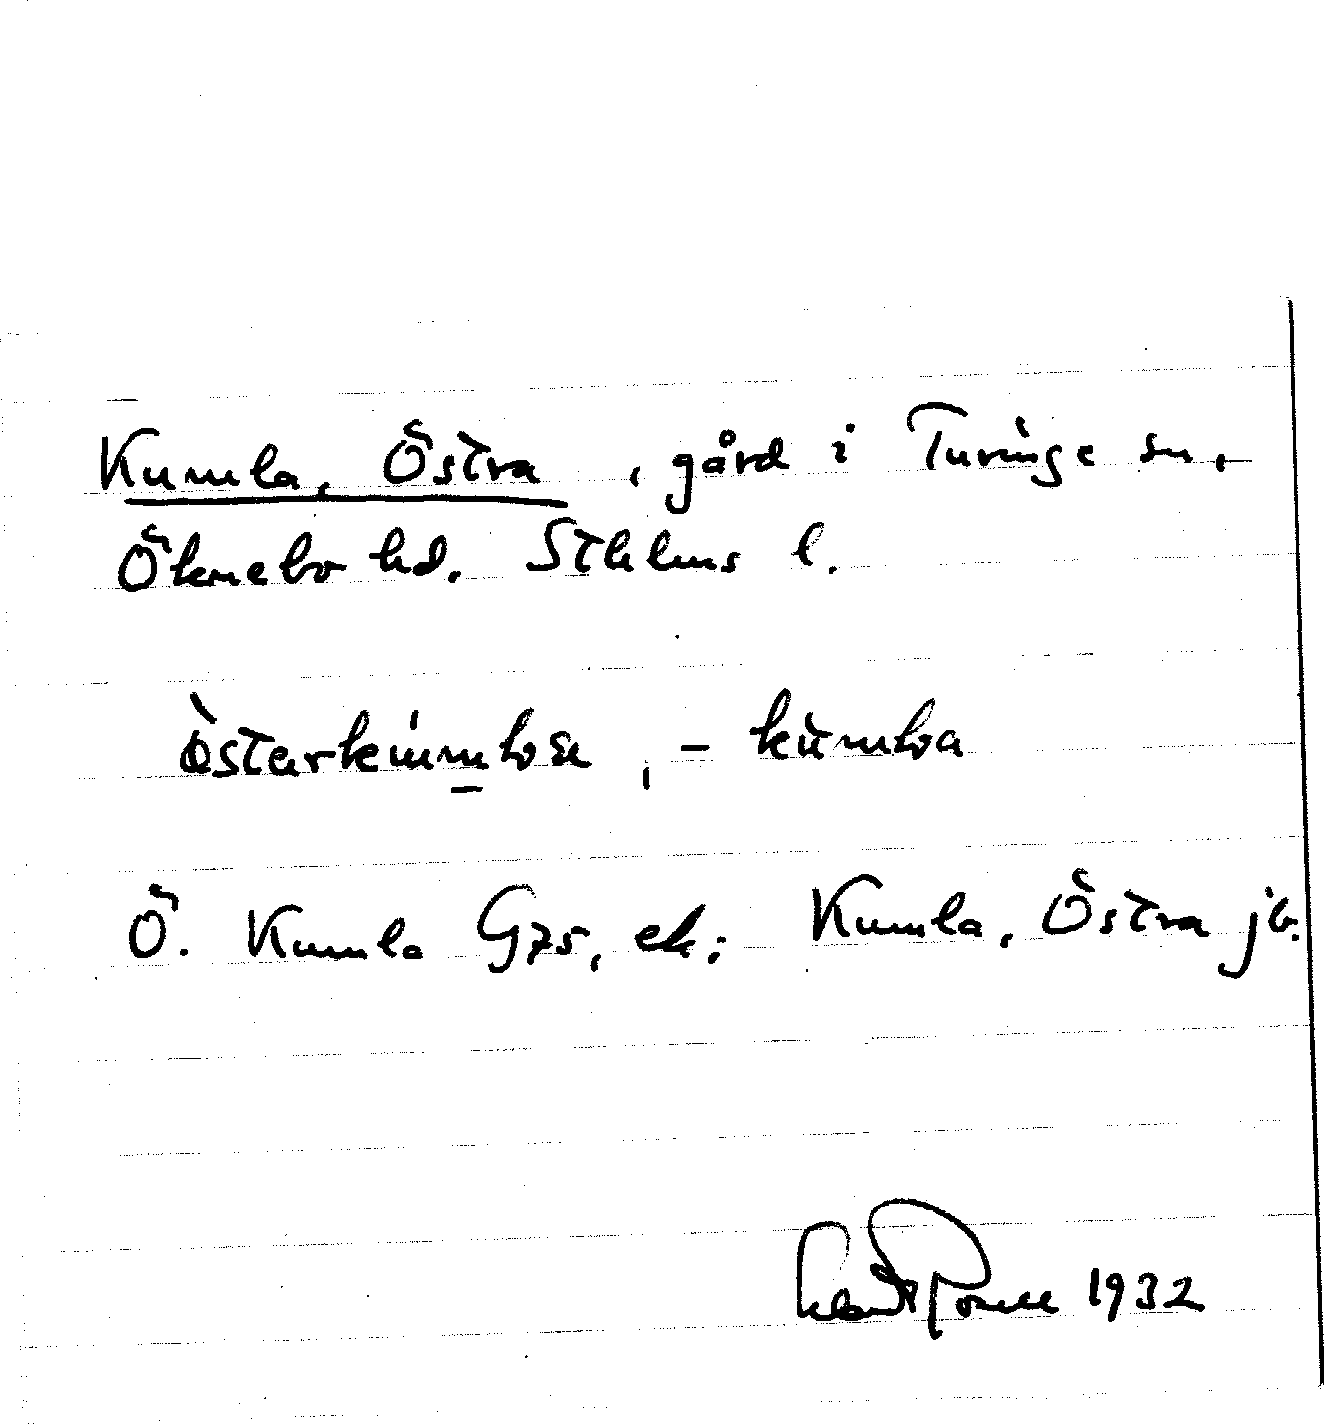 Kumla, Östra, gård i Turinge sn,
Öknebo hd. Sthlms l.
Ö. Kumla G75, ek; Kumla, Östra jb.
1932